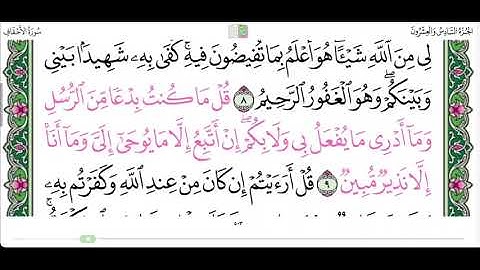 الجزء السادس والعشرون
سورة الأحقاف
لِي مِنَ ٱللَّهِ شَيْـًٔا ۖ هُوَ أَعْلَمُ بِمَا تُفِيضُونَ فِيهِ ۖ كَفَىٰ بِهِۦ شَهِيدًۢا بَيْنِي
وَبَيْنَكُمْ ۖ وَهُوَ ٱلْغَفُورُ ٱلرَّحِيمُ ٨ قُلْ مَا كُنتُ بِدْعًا مِّنَ ٱلرُّسُلِ
وَمَآ أَدْرِى مَا يُفْعَلُ بِى وَلَا بِكُمْ ۖ إِنْ أَتَّبِعُ إِلَّا مَا يُوحَىٰٓ إِلَىَّ وَمَآ أَنَا۠
إِلَّا نَذِيرٌ مُّبِينٌ ٩ قُلْ أَرَءَيْتُمْ إِن كَانَ مِنْ عِندِ ٱللَّهِ وَكَفَرْتُم بِهِۦ